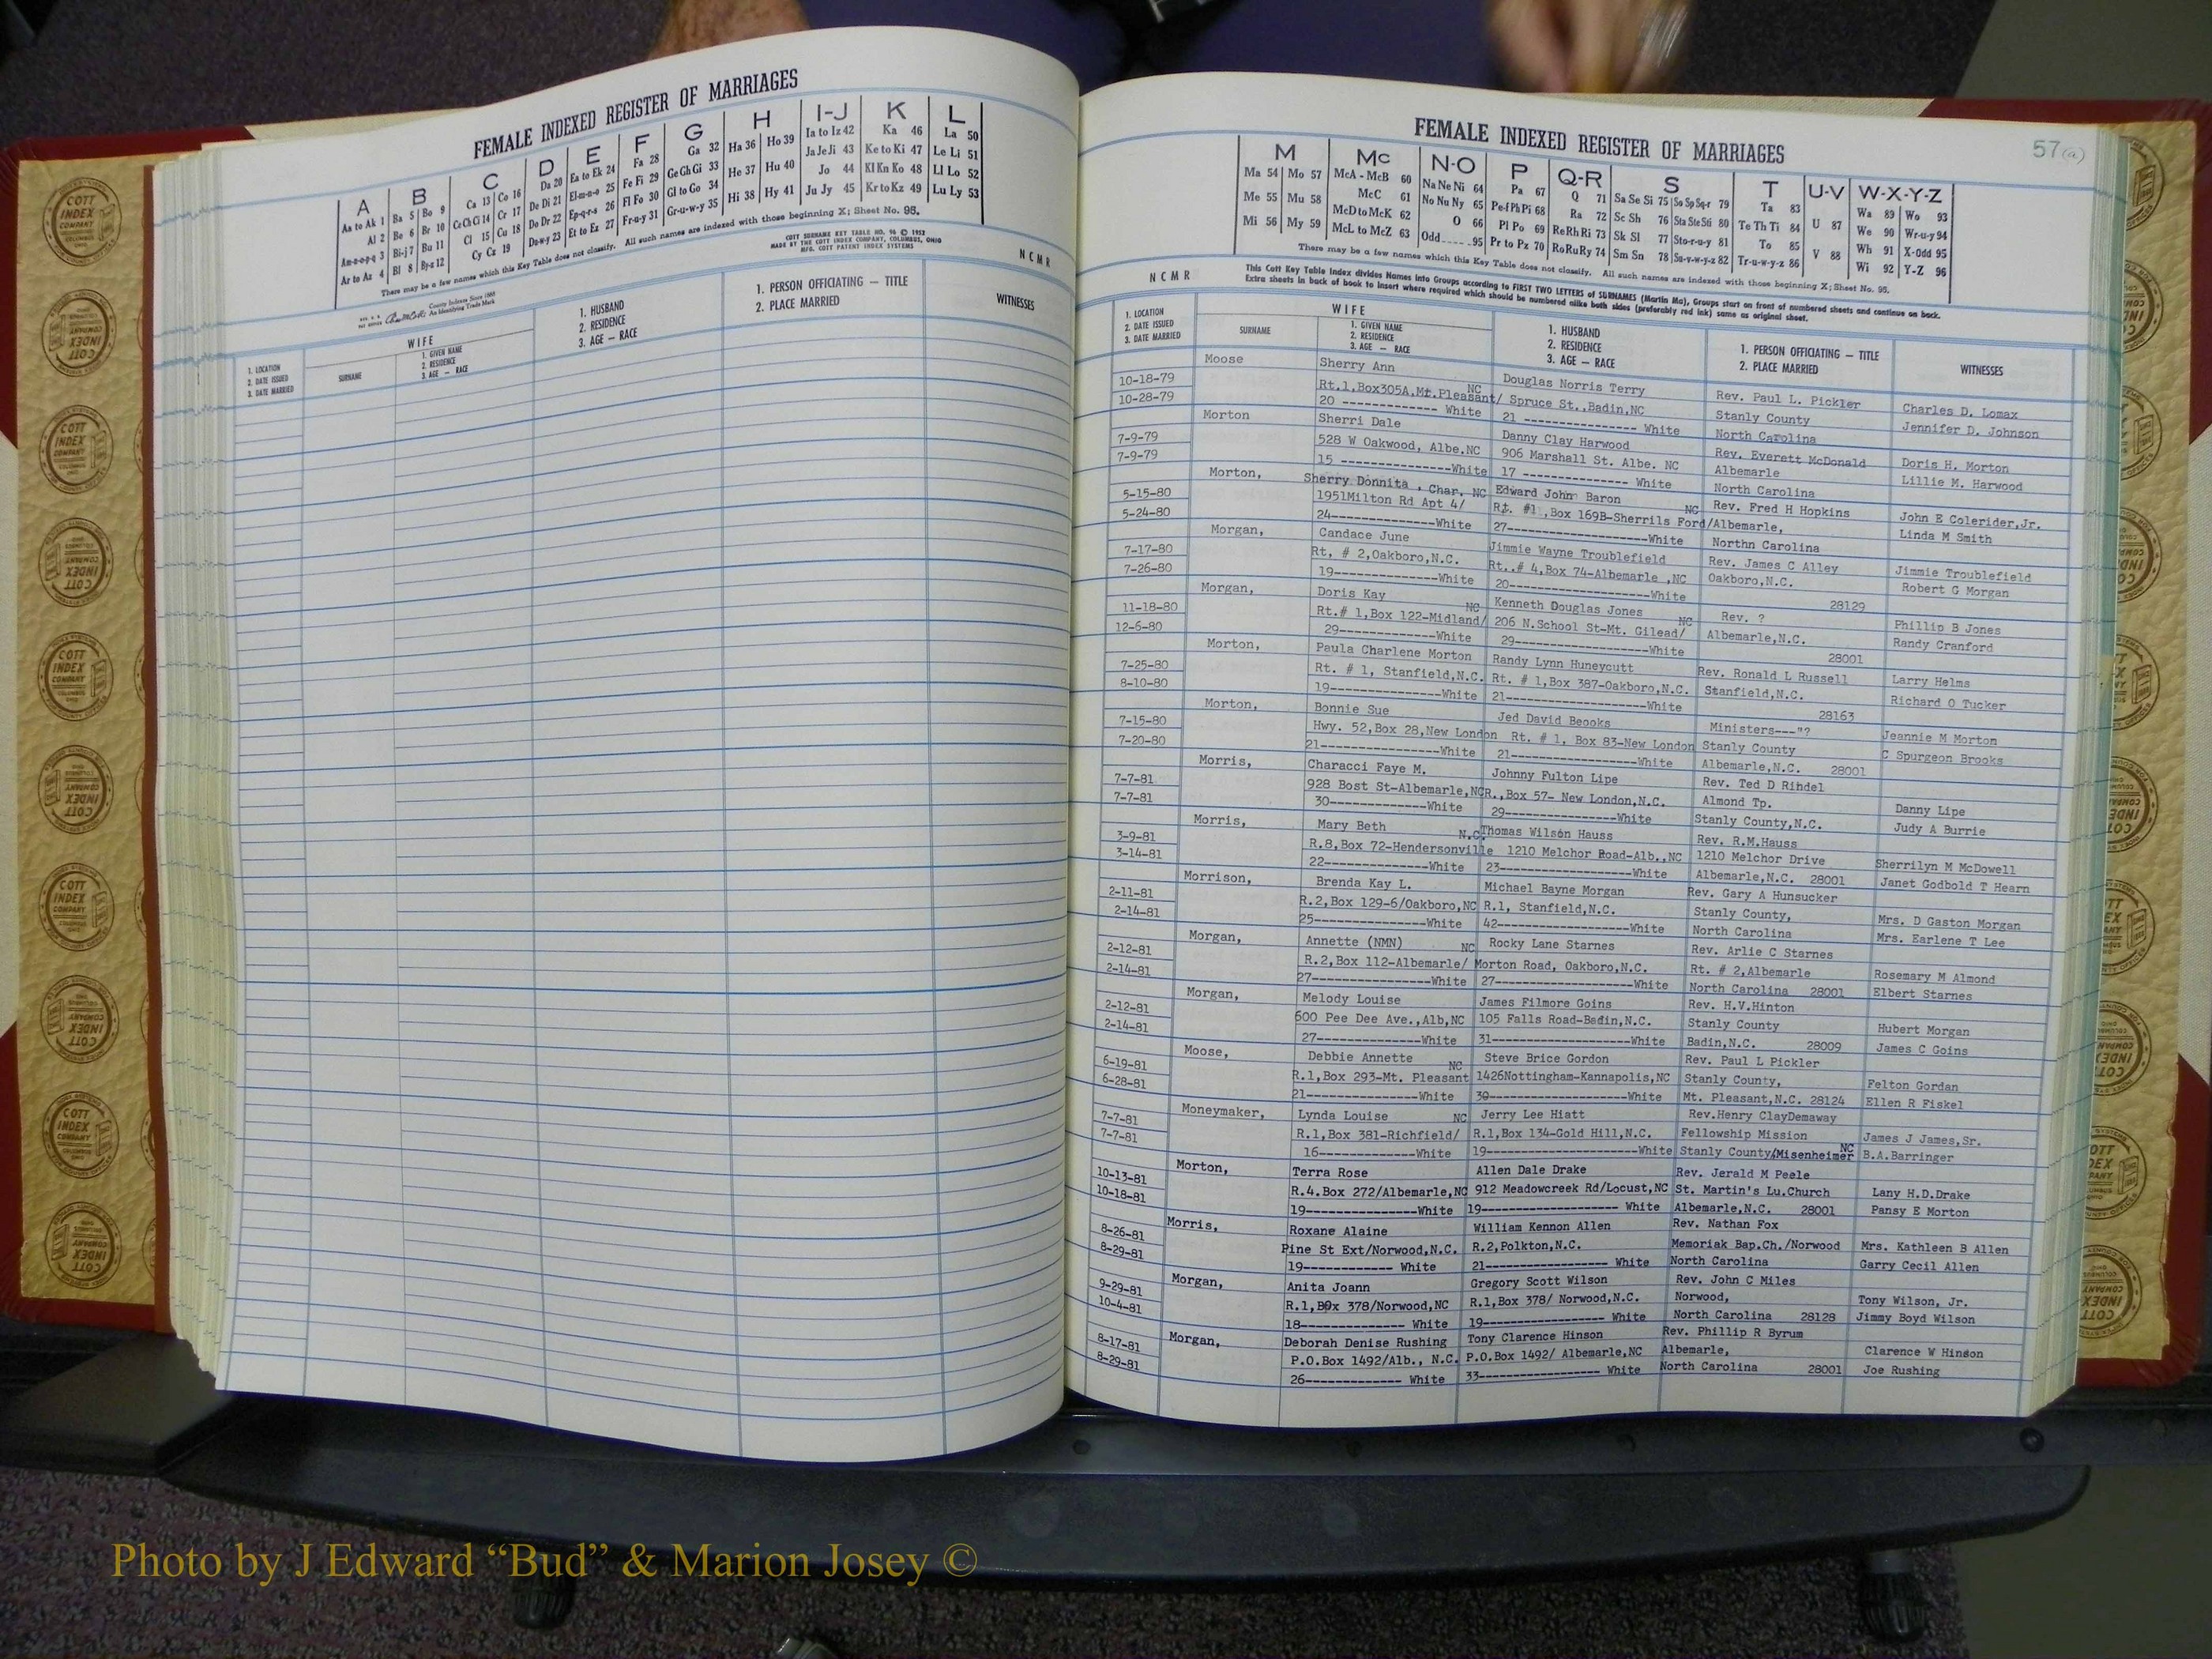 FEMALE INDEXED REGISTER OF MARRIAGES
A B C D E F G H I-J K L
Aa to Ak 1 Ba 5 Bo 9 Ca 13 Co 16 Da 20 Ea to Ek 24 Fa 28 Ga 32 Ha 36 Ho 39 Ia to Iz 42 Ka 46 La 50
Al 2 Be 6 Br 10 Ce Ch Ci 14 Cr 17 De Di 21 El-m-n-o 25 Fe Fi 29 Ge Gh Gi 33 He 37 Hu 40 Ja Je Ji 43 Ke to Ki 47 Le Li 51
Am-n-o-p-q 3 Bi-j 7 Bu 11 Cl 15 Cu 18 Do Dr 22 Ep-q-r-s 26 Fl Fo 30 Gl to Go 34 Hi 38 Hy 41 Jo 44 Kl Kn Ko 48 Ll Lo 52
Ar to Az 4 Bl 8 By-z 12 Cy Cz 19 Du-w-y 23 Et to Ez 27 Fr-u-y 31 Gr-u-w-y 35 Ju Jy 45 Kr to Kz 49 Lu Ly 53
There may be a few names which this Key Table does not classify. All such names are indexed with those beginning X; Sheet No. 95.
COTT SURNAME KEY TABLE NO. 96 © 1952
MADE BY THE COTT INDEX COMPANY, COLUMBUS, OHIO
MFG. COTT PATENT INDEX SYSTEMS
County Indexes Since 1888
An Identifying Trade Mark
N C M R
1. LOCATION
2. DATE ISSUED
3. DATE MARRIED
WIFE
SURNAME
1. GIVEN NAME
2. RESIDENCE
3. AGE — RACE
1. HUSBAND
2. RESIDENCE
3. AGE — RACE
1. PERSON OFFICIATING — TITLE
2. PLACE MARRIED
WITNESSES
FEMALE INDEXED REGISTER OF MARRIAGES
57(a)
M Mc N-O P Q-R S T U-V W-X-Y-Z
Ma 54 Mo 57 McA - McB 60 Na Ne Ni 64 Pa 67 Q 71 Sa Se Si 75 So Sp Sq-r 79 Ta 83 U 87 Wa 89 Wo 93
Me 55 Mu 58 McC 61 No Nu Ny 65 Pe-f Ph Pi 68 Ra 72 Sc Sh 76 Sta Ste Sti 80 Te Th Ti 84 V 88 We 90 Wr-u-y 94
Mi 56 My 59 McD to McK 62 O 66 Pl Po 69 Re Rh Ri 73 Sk Sl 77 Sto-r-u-y 81 To 85 Wh 91 X-Odd 95
McL to McZ 63 Odd 95 Pr to Pz 70 Ro Ru Ry 74 Sm Sn 78 Su-v-w-y-z 82 Tr-u-w-y-z 86 Wi 92 Y-Z 96
There may be a few names which this Key Table does not classify. All such names are indexed with those beginning X; Sheet No. 95.
N C M R
This Cott Key Table Index divides Names into Groups according to FIRST TWO LETTERS of SURNAMES (Martin Ma), Groups start on front of numbered sheets and continue on back.
Extra sheets in back of book to insert where required which should be numbered alike both sides (preferably red ink) same as original sheet.
1. LOCATION
2. DATE ISSUED
3. DATE MARRIED
WIFE
SURNAME
1. GIVEN NAME
2. RESIDENCE
3. AGE — RACE
1. HUSBAND
2. RESIDENCE
3. AGE — RACE
1. PERSON OFFICIATING — TITLE
2. PLACE MARRIED
WITNESSES
Moose Sherry Ann Douglas Norris Terry Rev. Paul L. Pickler Charles D. Lomax
10-18-79 Rt.1,Box305A,Mt.Pleasant/ NC Spruce St.,Badin,NC Stanly County Jennifer D. Johnson
10-28-79 20 ------------- White 21 ---------------- White North Carolina
Morton Sherri Dale Danny Clay Harwood Rev. Everett McDonald Doris H. Morton
7-9-79 528 W Oakwood, Albe.NC 906 Marshall St. Albe. NC Albemarle Lillie M. Harwood
7-9-79 15 ---------------White 17 -------------- White North Carolina
Morton, Sherry Donnita , Char. NC Edward John Baron Rev. Fred H Hopkins John E Colerider,Jr.
5-15-80 1951Milton Rd Apt 4/ Rt. #1 ,Box 169B-Sherrils Ford/ NC Albemarle, Linda M Smith
5-24-80 24--------------White 27------------------White Northn Carolina
Morgan, Candace June Jimmie Wayne Troublefield Rev. James C Alley Jimmie Troublefield
7-17-80 Rt, # 2,Oakboro,N.C. Rt..# 4,Box 74-Albemarle ,NC Oakboro,N.C. Robert G Morgan
7-26-80 19--------------White 20------------------White 28129
Morgan, Doris Kay Kenneth Douglas Jones Rev. ? Phillip B Jones
11-18-80 Rt.# 1,Box 122-Midland/ NC 206 N.School St-Mt. Gilead/ NC Albemarle,N.C. Randy Cranford
12-6-80 29--------------White 29------------------White 28001
Morton, Paula Charlene Morton Randy Lynn Huneycutt Rev. Ronald L Russell Larry Helms
7-25-80 Rt. # 1, Stanfield,N.C. Rt. # 1,Box 387-Oakboro,N.C. Stanfield,N.C. Richard O Tucker
8-10-80 19---------------White 21------------------White 28163
Morton, Bonnie Sue Jed David Beooks Ministers---"? Jeannie M Morton
7-15-80 Hwy. 52,Box 28,New London Rt. # 1, Box 83-New London Stanly County C Spurgeon Brooks
7-20-80 21---------------White 21------------------White Albemarle,N.C. 28001
Morris, Characci Faye M. Johnny Fulton Lipe Rev. Ted D Rihdel Danny Lipe
7-7-81 928 Bost St-Albemarle,NC R.,Box 57- New London,N.C. Almond Tp. Judy A Burrie
7-7-81 30-------------White 29---------------White Stanly County,N.C.
Morris, Mary Beth Thomas Wilson Hauss Rev. R.M.Hauss Sherrilyn M McDowell
3-9-81 R.8,Box 72-Hendersonville N.C 1210 Melchor Road-Alb.,NC 1210 Melchor Drive Janet Godbold T Hearn
3-14-81 22--------------White 23------------------White Albemarle,N.C. 28001
Morrison, Brenda Kay L. Michael Bayne Morgan Rev. Gary A Hunsucker Mrs. D Gaston Morgan
2-11-81 R.2,Box 129-6/Oakboro,NC R.1, Stanfield,N.C. Stanly County, Mrs. Earlene T Lee
2-14-81 25---------------White 42------------------White North Carolina
Morgan, Annette (NMN) Rocky Lane Starnes Rev. Arlie C Starnes Rosemary M Almond
2-12-81 R.2,Box 112-Albemarle/ NC Morton Road, Oakboro,N.C. Rt. # 2,Albemarle Elbert Starnes
2-14-81 27---------------White 27------------------White North Carolina 28001
Morgan, Melody Louise James Filmore Goins Rev. H.V.Hinton Hubert Morgan
2-12-81 600 Pee Dee Ave.,Alb,NC 105 Falls Road-Badin,N.C. Stanly County James C Goins
2-14-81 27--------------White 31------------------White Badin,N.C. 28009
Moose, Debbie Annette Steve Brice Gordon Rev. Paul L Pickler Felton Gordan
6-19-81 R.1,Box 293-Mt. Pleasant NC 1426Nottingham-Kannapolis,NC Stanly County, Ellen R Fiskel
6-28-81 21--------------White 30------------------White Mt. Pleasant,N.C. 28124
Moneymaker, Lynda Louise Jerry Lee Hiatt Rev.Henry ClayDemaway James J James,Sr.
7-7-81 R.1,Box 381-Richfield/ NC R.1,Box 134-Gold Hill,N.C. Fellowship Mission B.A.Barringer
7-7-81 16--------------White 19------------------White Stanly County/Misenheimer NC
Morton, Terra Rose Allen Dale Drake Rev. Jerald M Peele Lany H.D.Drake
10-13-81 R.4.Box 272/Albemarle,NC 912 Meadowcreek Rd/Locust,NC St. Martin's Lu.Church Pansy E Morton
10-18-81 19--------------White 19----------------- White Albemarle,N.C. 28001
Morris, Roxane Alaine William Kennon Allen Rev. Nathan Fox Mrs. Kathleen B Allen
8-26-81 Pine St Ext/Norwood,N.C. R.2,Polkton,N.C. Memoriak Bap.Ch./Norwood Garry Cecil Allen
8-29-81 19------------ White 21--------------- White North Carolina
Morgan, Anita Joann Gregory Scott Wilson Rev. John C Miles Tony Wilson, Jr.
9-29-81 R.1,Box 378/Norwood,NC R.1,Box 378/ Norwood,N.C. Norwood, Jimmy Boyd Wilson
10-4-81 18-------------- White 19--------------- White North Carolina 28128
Morgan, Deborah Denise Rushing Tony Clarence Hinson Rev. Phillip R Byrum Clarence W Hinson
8-17-81 P.O.Box 1492/Alb., N.C. P.O.Box 1492/ Albemarle,NC Albemarle, Joe Rushing
8-29-81 26------------- White 33----------------- White North Carolina 28001
COTT
INDEX
COMPANY
Photo by J Edward “Bud” & Marion Josey ©